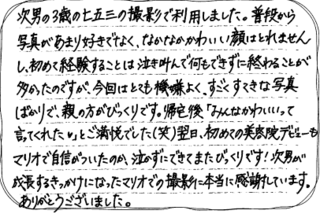 次男の3歳の七五三の撮影で利用しました。普段から
写真があまり好きでなく、なかなかかわいい顔はとれません
し、初めて経験することは泣き叫んで何もできずに終わることが
多かったのですが、今回はとても機嫌よく、すごくすてきな写真
ばかりで、親の方がびっくりです。帰宅後「みんなかわいいって
言ってくれた♡」とご満悦でした(笑)翌日、初めての美容院デビューも
マリオで自信がついたのか、泣かずにできてまたびっくりです!次男が
成長するきっかけになったマリオでの撮影に本当に感謝しています。
ありがとうございました。